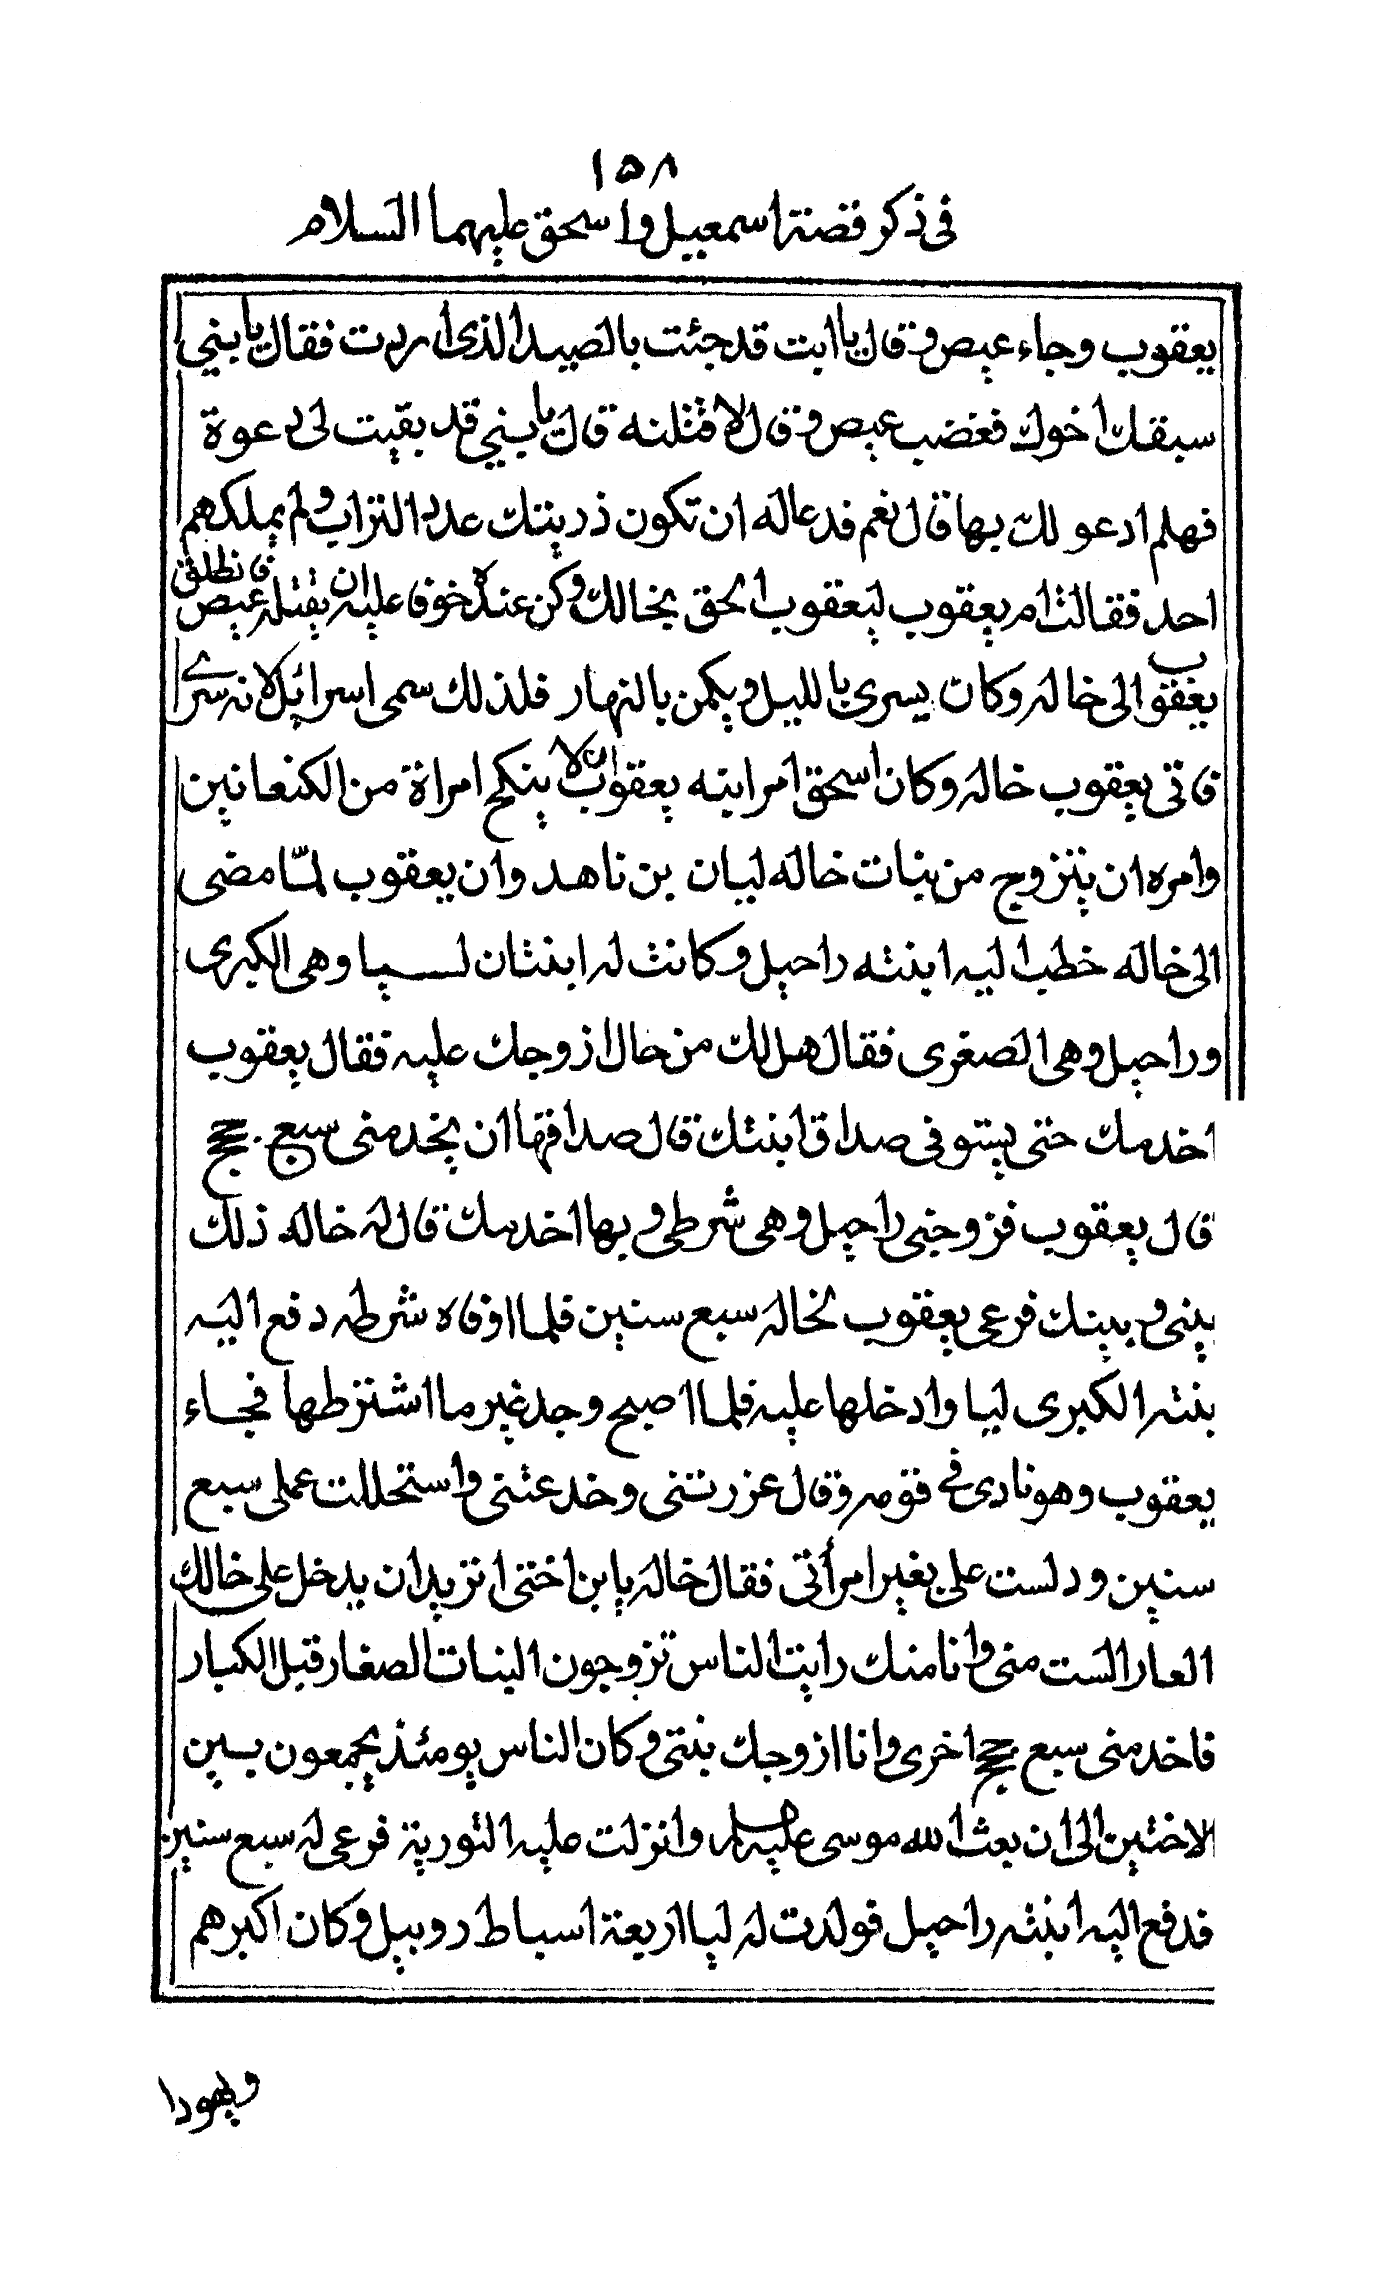 ١٥٨
فى ذكر قصة اسمعيل واسحق عليهما السلام
يعقوب وجاء عيص وقال يا ابت قد جئت بالصيد الذى اردت فقال يا بني
سبقك اخوك فغضب عيص وقال لاقتلنه قال يا بني قد بقيت لى دعوة
فهلم ادعو لك بها قال نعم فدعا له ان تكون ذريتك عدد التراب ولم يملكهم
احد فقالت ام يعقوب ليعقوب الحق بخالك وكن عنده خوفا عليه ان يقتله عيص فانطلق
يعقوب الى خاله وكان يسرى بالليل ويكمن بالنهار فلذلك سمى اسرائيل لانه سرى
فاتى يعقوب خاله وكان اسحق امر ابنه يعقوب ان لا ينكح امراة من الكنعانيين
وامره ان يتزوج من بنات خاله ليان بن ناهد وان يعقوب لمّا مضى
الى خاله خطب اليه ابنته راحيل وكانت له ابنتان ليا وهى الكبرى
وراحيل وهى الصغرى فقال هل لك من حال ازوجك عليه فقال يعقوب
اخدمك حتى يستوفى صداق ابنتك قال صداقها ان يخدمنى سبع حجج
قال يعقوب فزوجنى راحيل وهى شرطى وبها اخدمك قال له خاله ذلك
بينى وبينك فرعى يعقوب لخاله سبع سنين فلما اوفاه شرطه دفع اليه
بنته الكبرى ليا وادخلها عليه فلما اصبح وجد غير ما اشترطها فجاء
يعقوب وهو نادى فى قومه وقال عزرتنى وخدعتنى واستحللت عملى سبع
سنين ودلست على بغير امرأتى فقال خاله يا بن اختى اتريد ان يدخل على خالك
العار الست منى وانا منك رايت الناس تزوجون البنات الصغار قبل الكبار
فاخدمنى سبع حجج اخرى وانا ازوجك بنتى وكان الناس يومئذ يجمعون بين
الاختين الى ان بعث الله موسى عليه السلام وانزلت عليه التورية فرعى له سبع سنين
فدفع اليه ابنته راحيل فولدت له ليا اربعة اسباط روبيل وكان اكبرهم
ويهودا